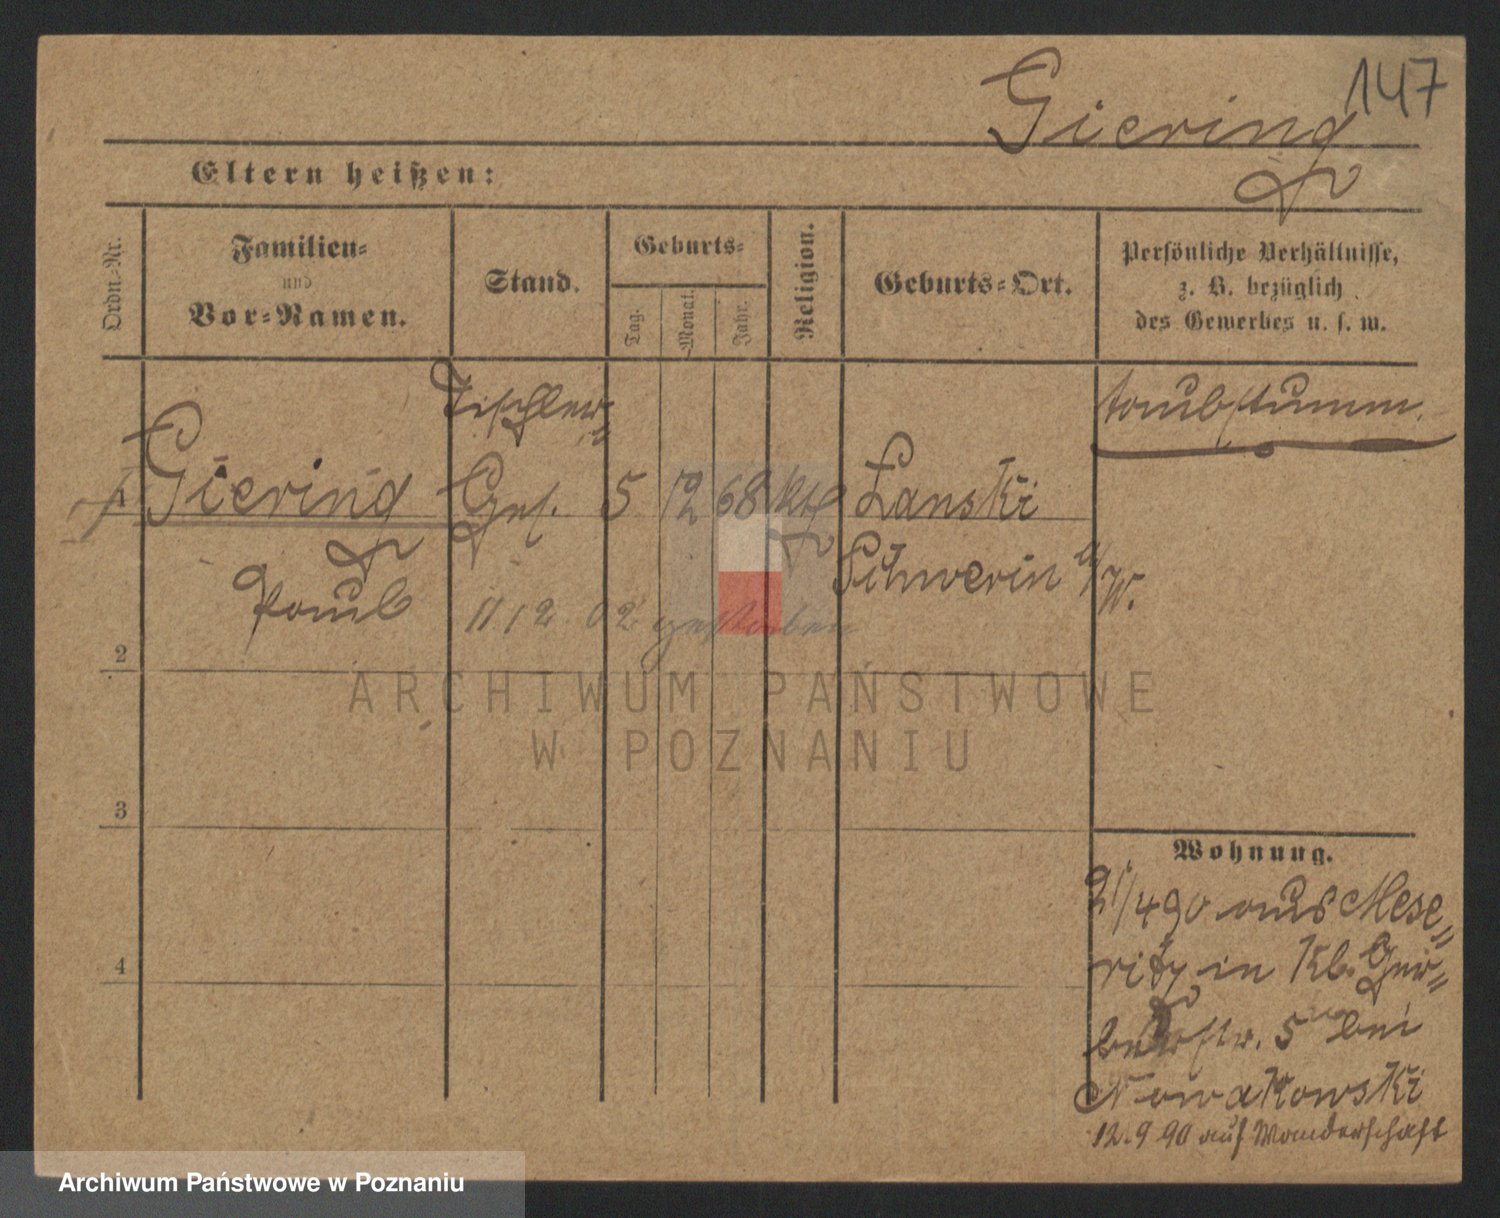 147
Giering
Eltern heißen:
Ordn.-Nr.
Familien-
und
Vor-Namen.
Stand.
Geburts-
Tag.
Monat.
Jahr.
Religion.
Geburts-Ort.
Persönliche Verhältnisse,
z. B. bezüglich
des Gewerbes u. s. w.
Tischler-
taubstumm
1
Giering
Ges.
5
12
68
kth
Lanski
Schwerin a/W.
Paul
11 12 02 gestorben
2
3
4
ARCHIWUM PAŃSTWOWE
W POZNANIU
Wohnung.
21/4 90 aus Mese-
ritz in Kl. Ger-
berstr. 5 bei
Nowakowski
12.9 90 auf Wanderschaft
Archiwum Państwowe w Poznaniu